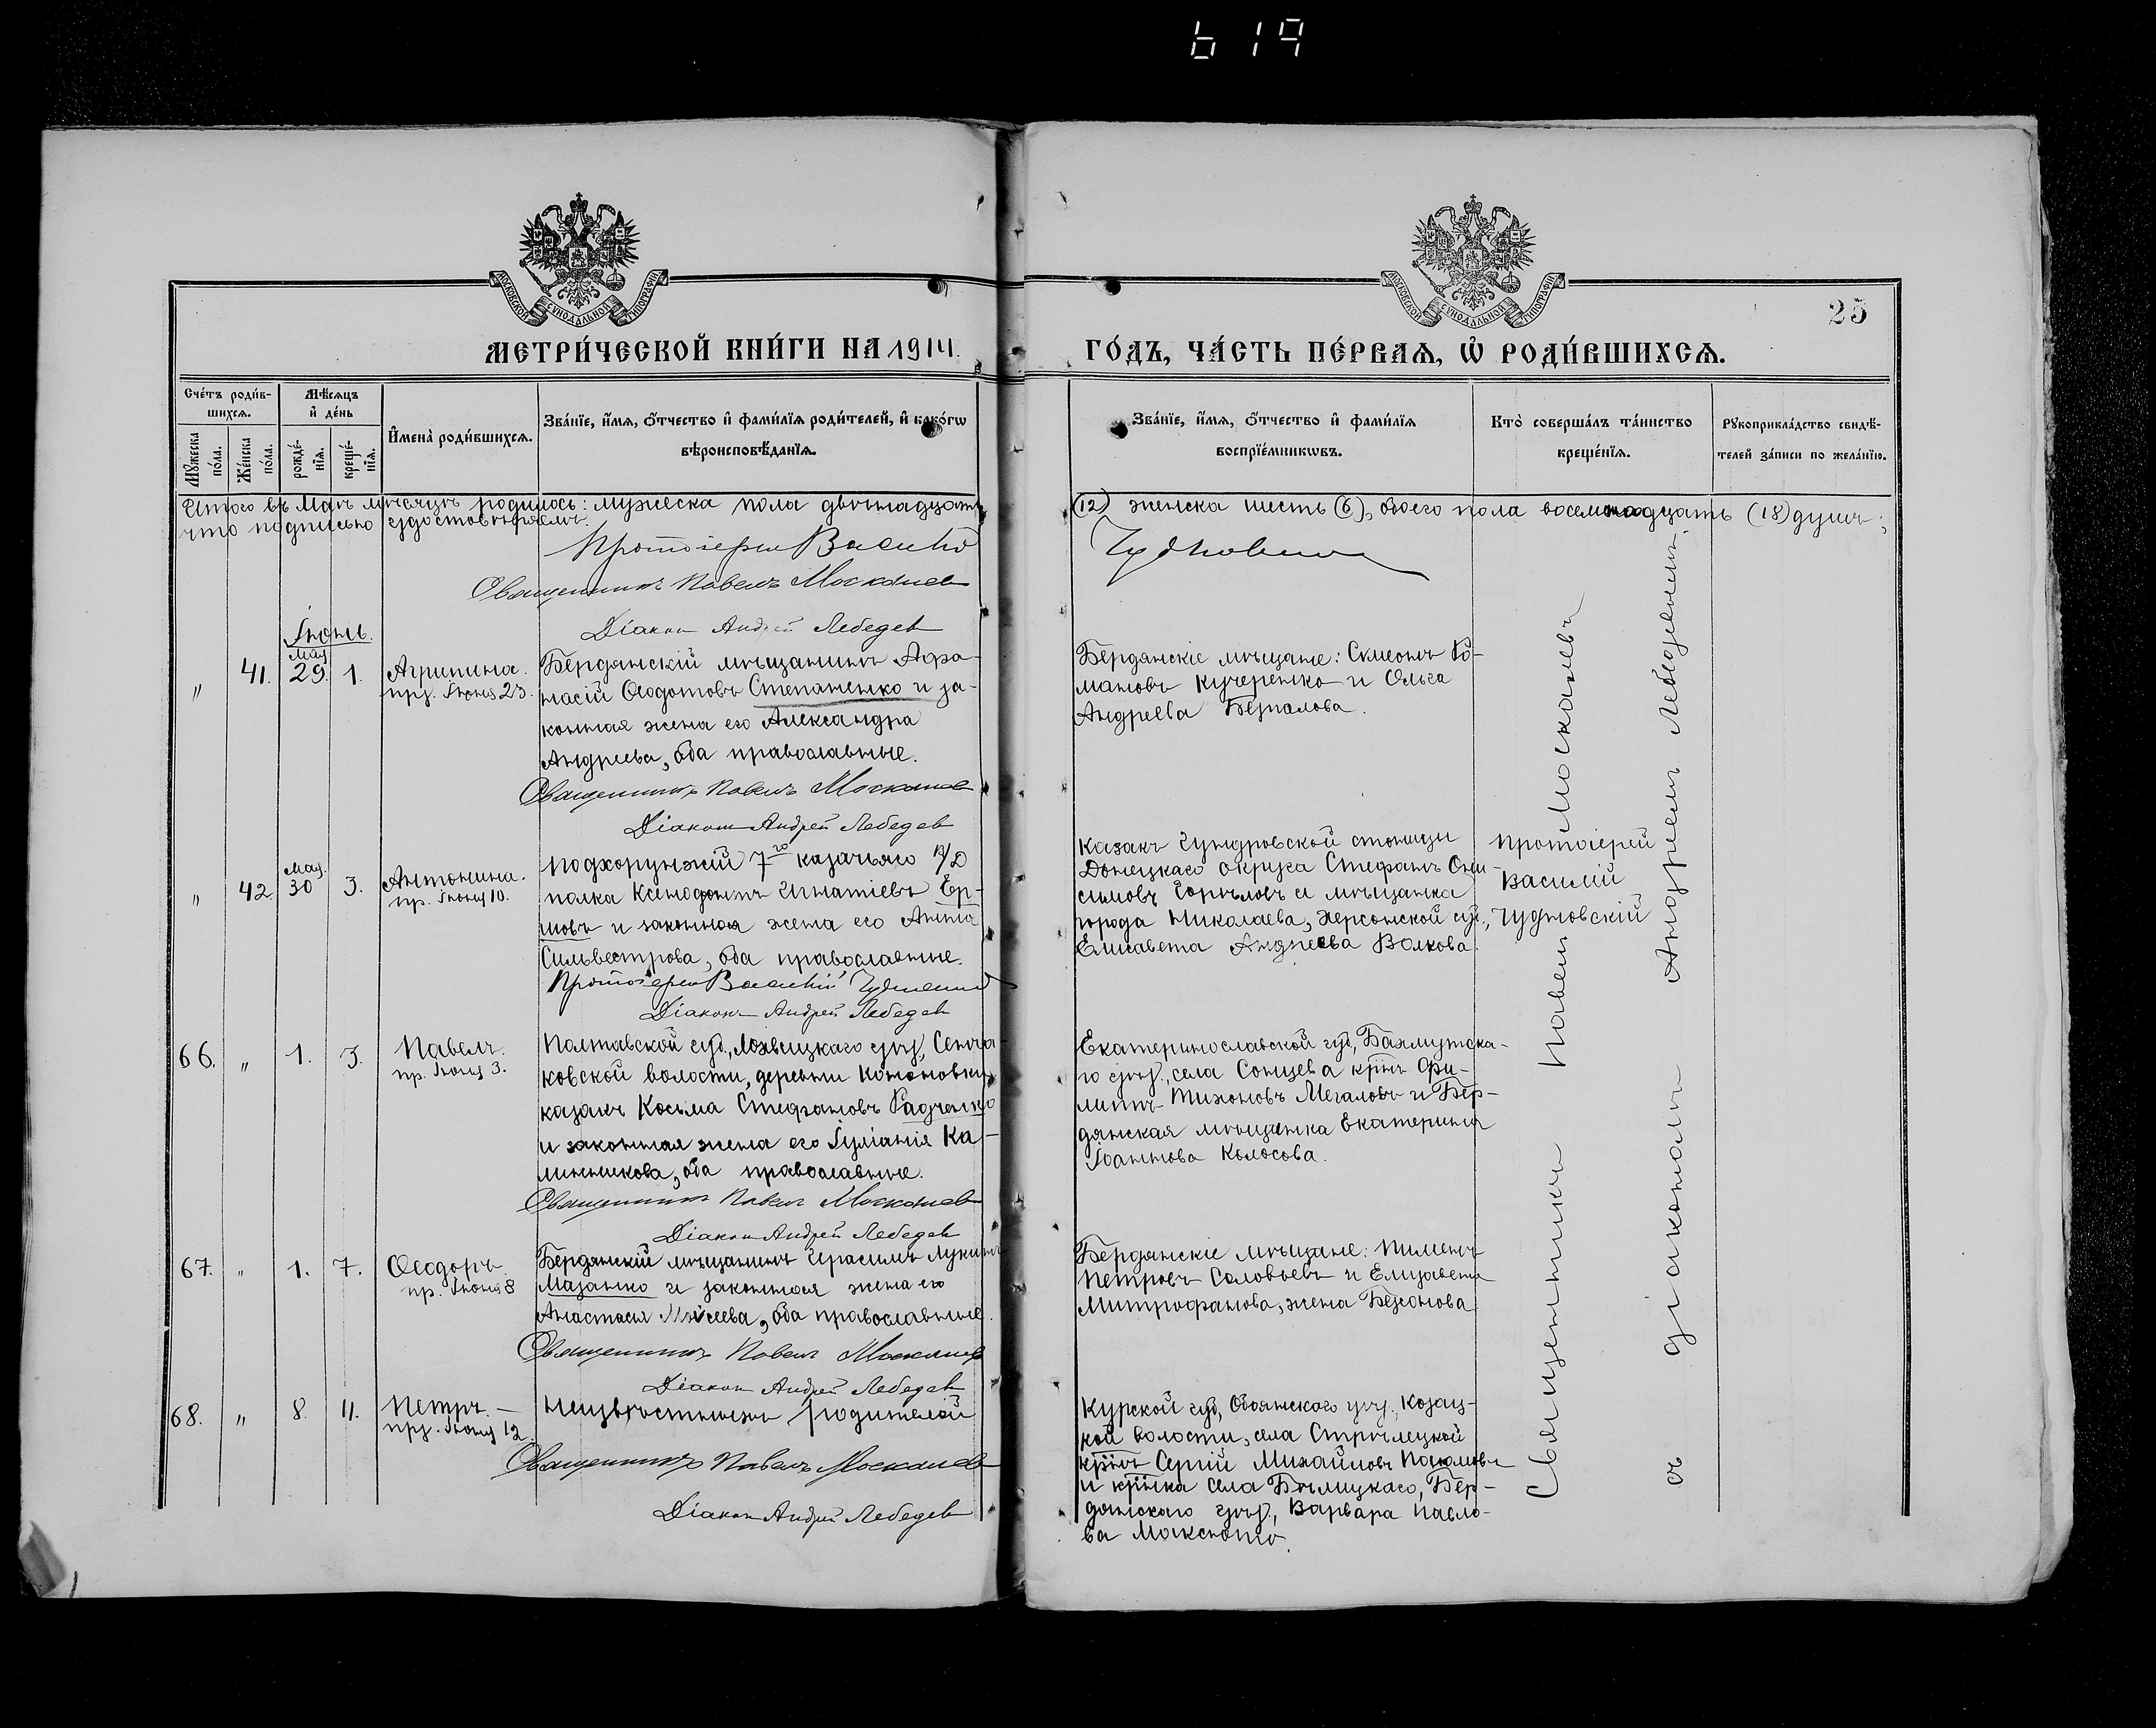 619
МОСКОВСКОЙ СѴНОДАЛЬНОЙ ТИПОГРАФІИ
МОСКОВСКОЙ СѴНОДАЛЬНОЙ ТИПОГРАФІИ
25
МЕТРИ́ЧЕСКОЙ КНИ́ГИ НА 1914.
ГО́ДЪ, ЧА́СТЬ ПЕ́РВАѦ, Ѡ҆ РОДИ́ВШИХСѦ.
Сче́тъ роди́в-
шихсѧ.
Мꙋ́жеска
по́ла.
Же́нска
по́ла.
Мѣ́сѧцъ
и҆ де́нь
рожде́-
нїѧ.
креще́-
нїѧ.
И҆мена̀ роди́вшихсѧ.
Зва́нїе, и҆́мѧ, ѻ҆́тчество и҆ фами́лїѧ роди́телей, и҆ како́гѡ
вѣроисповѣ́данїѧ.
Зва́нїе, и҆́мѧ, ѻ҆́тчество и҆ фами́лїѧ
воспрїе́мникѡвъ.
Кто̀ соверша́лъ та́инство
креще́нїѧ.
Рꙋкоприкла́дство свидѣ́-
телей за́писи по жела́нїю.
Итого въ Маѣ мѣсяцѣ родилось: мужеска пола двѣнадцать
(12) женска шесть (6), обоего пола восемнадцать (18) душъ;
что подписью удостовѣряемъ.
Протоіерей Василій
Чудновскій
Священникъ Павелъ Москалев
Діакон Андрей Лебедев
Іюнь.
" 41. Мая 29. 1. Агрипина.
прз. Іюня 23.
Бердянскій мѣщанинъ Афа-
насій Ѳеодотовъ Степаненко и за-
конная жена его Александра
Андреева, оба православные.
Священникъ Павелъ Москалев
Діакон Андрей Лебедев
Бердянскіе мѣщане: Симеонъ Ро-
мановъ Кучеренко и Ольга
Андреева
" 42. Мая. 30 3. Антонина.
пр. Іюня 10.
Подхорунжій 7го казачьяго В/Д
полка Ксенофонтъ Игнатіевъ Ер-
шовъ и законная жена его Анна
Сильвестрова, оба православные.
Протоіерей Василій Чудновскій
Діаконъ Андрей Лебедев
Казакъ Гундровской станицы
Донецкаго округа Стефанъ Они-
симовъ и мѣщанка
города Николаева, Херсонской губ.,
Елисавета Андреева Волкова
Протоіерей
Василій
Чудновскій
66. " 1. 3. Павелъ.
пр. Іюня 3.
Полтавской губ., Лохвицкаго уѣз., Сенча-
ковской волости, деревни Кононовки
казакъ Косьма Стефановъ Радченко
и законная жена его Іуліанія Ка-
линникова, оба православные.
Священникъ Павелъ Москалев
Діакон Андрей Лебедев
Екатеринославской губ., Бахмутска-
го уѣз., села Сонцева крнъ Фи-
липпъ Тихоновъ Мегаловъ и Бер-
дянская мѣщанка Екатерина
Іоаннова Колосова.
67. " 1. 7. Ѳеодоръ.
пр. Іюня 8
Бердянскій мѣщанинъ Герасимъ Лукинъ
Мазанко и законная жена его
Анастасія Моісеева, оба православные.
Священникъ Павелъ Москалев
Діакон Андрей Лебедев
Бердянскіе мѣщане: Пименъ
Петровъ Соловьевъ и Елизавета
Митрофанова, жена
68. " 8. 11. Петръ. —
прз. Іюня 12.
Неизвѣстныхъ родителей
Священникъ Павелъ Москалев
Діакон Андрей Лебедев
Курской губ., Обоянскаго уѣз., Козац-
кой волости, села Стрѣлецкой
крнъ Сергій Михайловъ
и крнка села Бѣлицкаго, Бер-
дянскаго уѣз., Варвара Павло-
ва
Священникъ Павелъ Москалевъ
съ діакономъ Андреемъ Лебедевымъ.